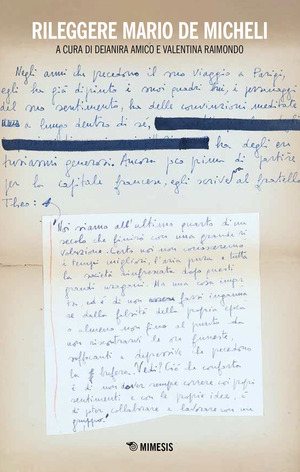 RILEGGERE MARIO DE MICHELI
A CURA DI DEIANIRA AMICO E VALENTINA RAIMONDO
Negli anni che precedono il suo viaggio a Parigi,
egli ha già dipinto i suoi quadri i personaggi
del suo sentimento, ha delle convinzioni meditate
a lungo dentro di sé,
ha degli en
tusiasmi generosi. Ancora poco prima di partire
per la capitale francese, egli scrive al fratello
Theo:
Noi siamo all'ultimo quarto di un
secolo che finirà con una grande ri
voluzione. Certo noi non conosceremo
i tempi migliori, l'aria pura e tutta
la società rinfrescata dopo questi
grandi uragani. Ma una cosa impor
ta, ed è di non essere fassi inganna
re dalla falsità della propria epoca
o almeno non fino al punto da
non riscontrarvi le ore funeste,
soffocanti e depressive che precedono
la bufera. Vedi? Ciò che conforta
è di non dover sempre correre coi propri
sentimenti e con le proprie idee, è
di poter collaborare e lavorare con un
gruppo."
MIMESIS